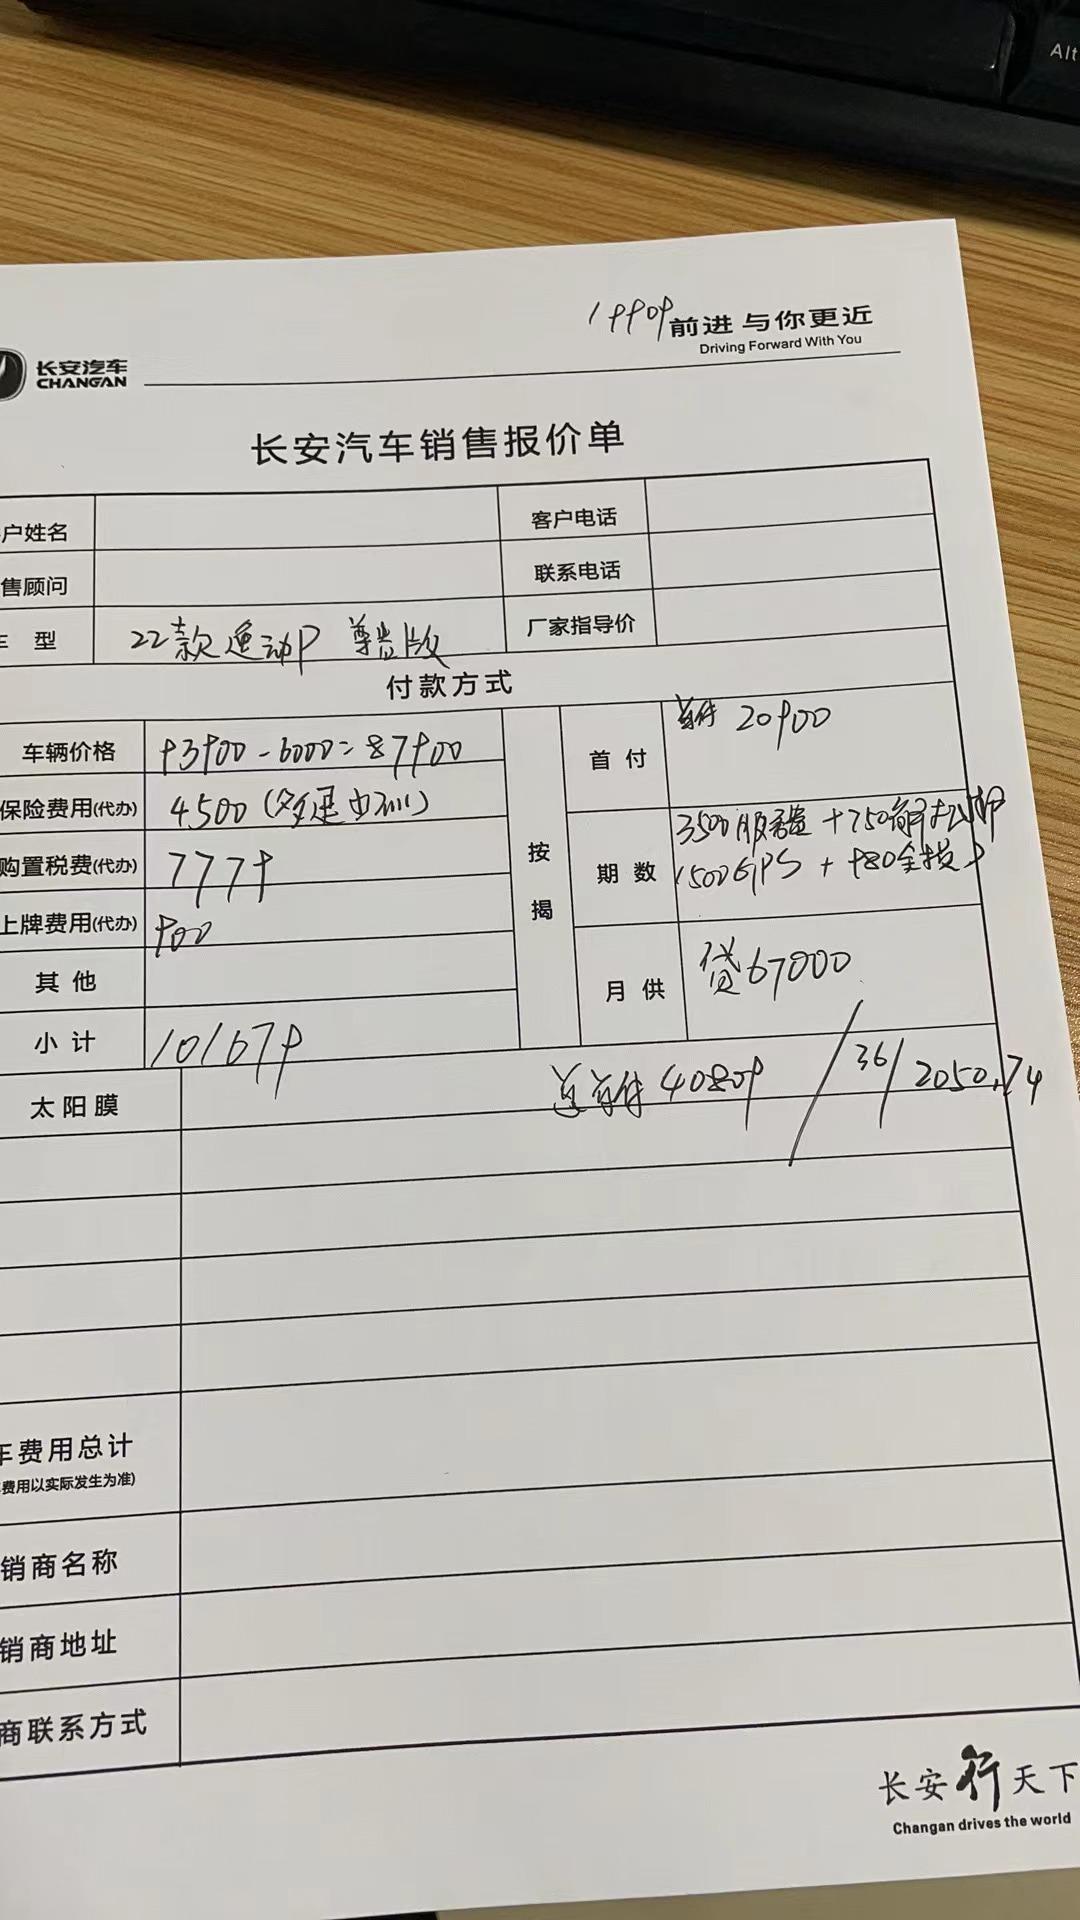 Alt
19909
前进 与你更近
Driving Forward With You
长安汽车
CHANGAN
长安汽车销售报价单
户姓名
客户电话
售顾问
联系电话
型 22款逸动P 尊贵版
厂家指导价
付款方式
车辆价格 93900-6000=87900
保险费用(代办) 4500(多退少补)
购置税费(代办) 7779
上牌费用(代办) 900
其 他
小 计 101679
按揭
首 付 首付 20900
期 数 3500服务费 +750
1500GPS + 980
月 供 贷67000
太阳膜
总首付 40809 / 36 / 2050.74
费用总计
费用以实际发生为准)
销商名称
销商地址
商联系方式
长安行天下
Changan drives the world